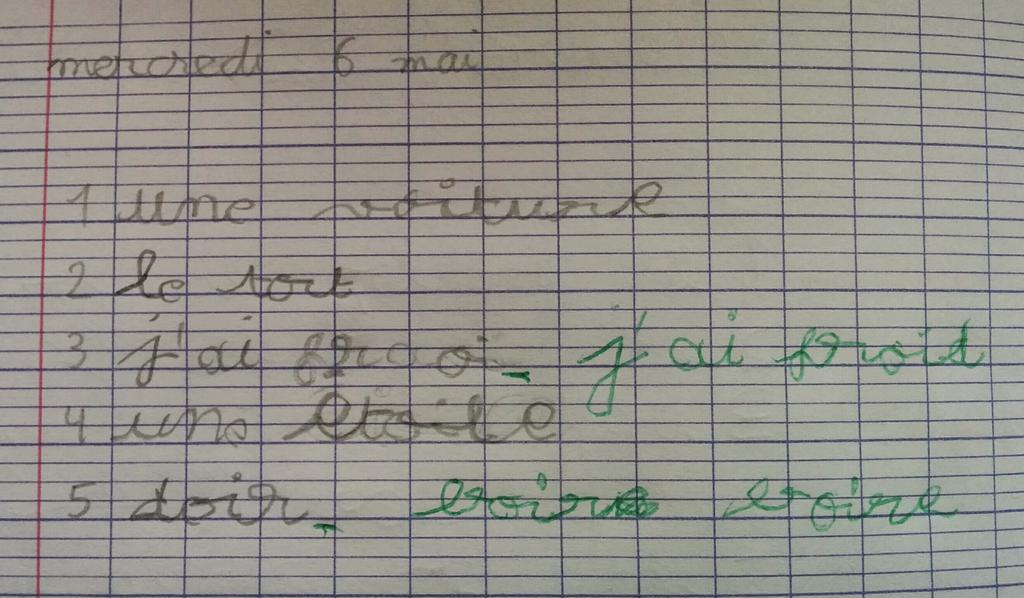 mercredi 6 mai
1 une voiture
2 le toit
3 j'ai froi_ j'ai froid
4 une étoile
5 boir_ boire boire